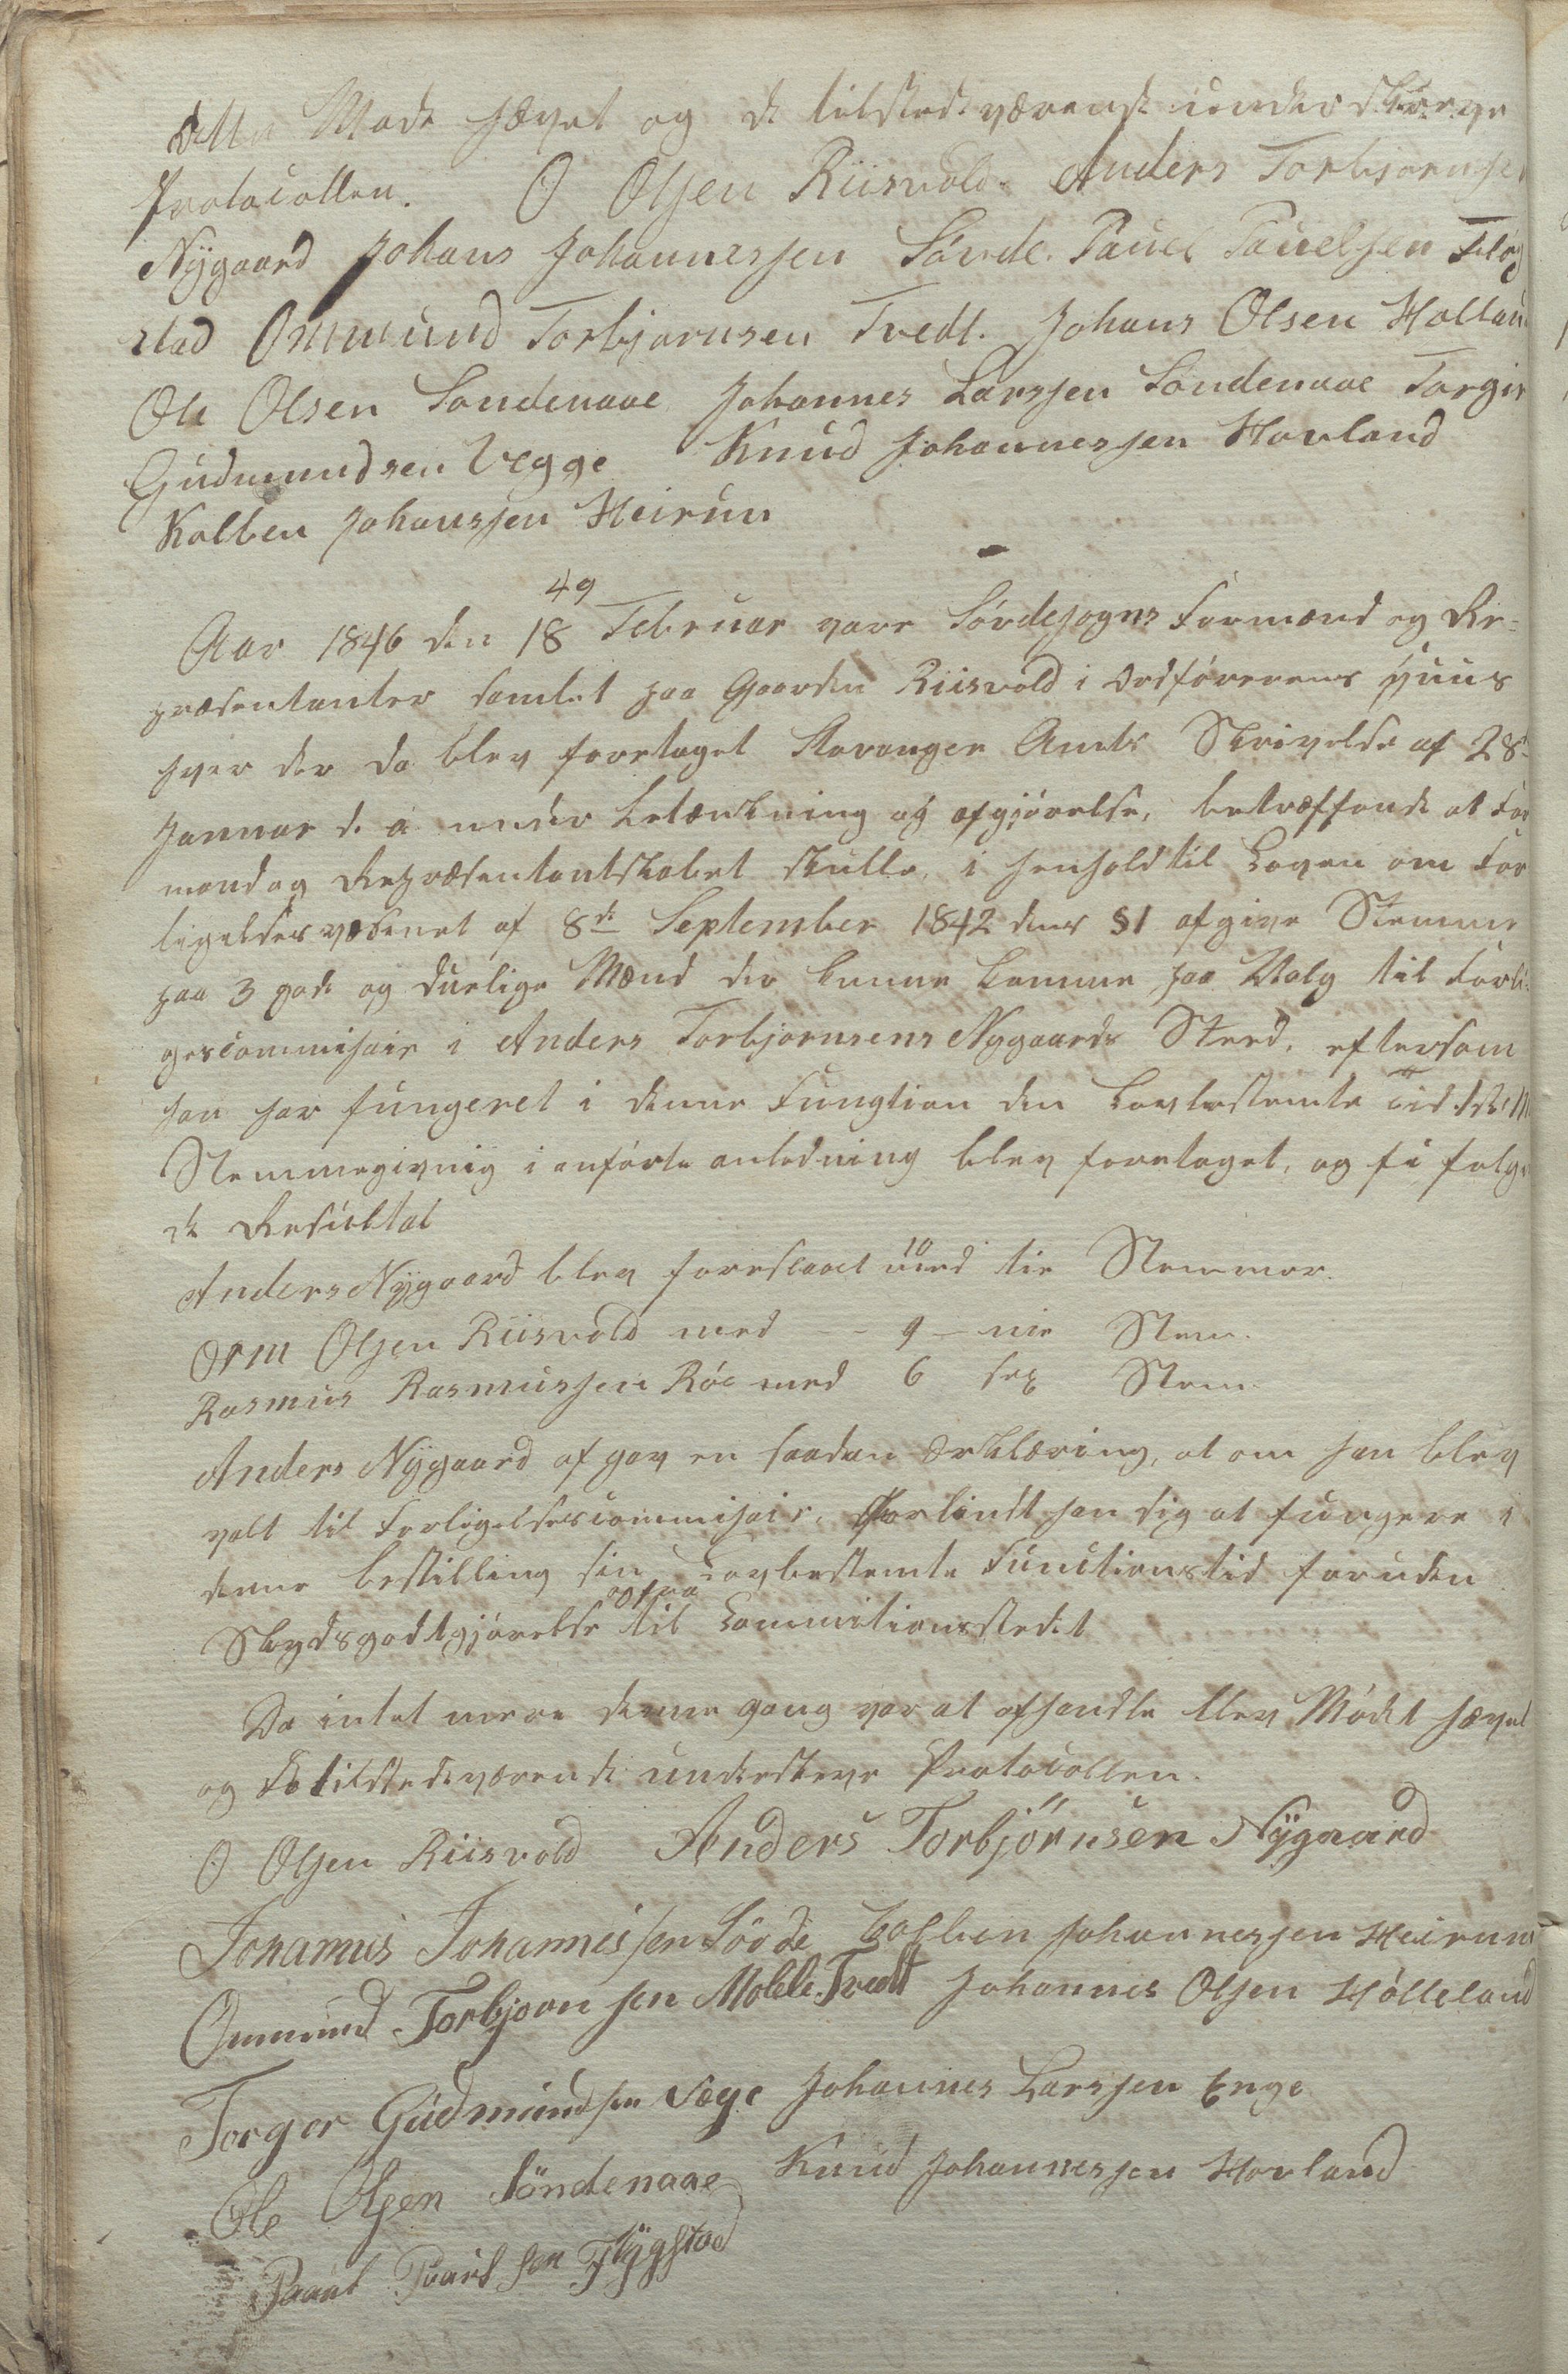 dette Möde hævet og de tilstedeværende underskreve
Protocollen. O Olsen Riisvold Anders Torbjörnsen
Nÿgaard Johans Johannessen Sövde. Pauel Pauelsen Flög
stad Ommund Torbjörnsen Tvedt. Johans Olsen Hollan
Ole Olsen Söndenaae Johannes Larssen Söndenaae Torgir
Gudmundsen Vegge Knud Johannessen Hovland
Kolben Johanssen Heirun
49
Aar 1846 den 18 Februar vare Sövdesogns Formænd og Re-
præsentanter samlet paa Gaarden Riisvold i Ordförerens Huus
hvor der da blev foretaget Stavanger Amts Skrivelse af 28-
Januar d. a. under betænkning og afgjörelse, betræffende at For
mand og Repræsentantskabet skulle, i henhold til Loven om For
ligelsesvæsenet af 8de September 1842 dens §1 afgive Stemme
paa 3 gode og duelige Mænd der kunne komme paa Valg til Forli-
gescommisair i Anders Torbjörnsens Nygaards Sted, eftersom
han har fungeret i denne Fungtion den Lovbestemte Tid.
Stemmegivnig i anförte anledning blev foretaget, og fi fölgen
de Resultat
Anders Nÿgaard blev foreslaaet med 10 tie Stemmer.
Orm Olsen Riisvold med -- 9 - nie Stem.
Rasmus Rasmussen Röe med 6 sex Stem.
Anders Nÿgaard afgav en saadan Erklæring, at om han blev
valt til Forligelsescommisair, forbindt han sig at fungere i
denne bestilling sin Lovbestemte Functionstid foruden
Skydsgodtgjörelse til og fra Commitionsstedet
Da intet mere denne gang var at afhandle blev Mödet hævet
og de tilstedeværende underskreve Protocollen.
O Olsen Riisvold Anders Torbjörnsen Nÿgaard
Johannis Johannissen Sövde Kolben Johannessen Heirum
Ommund Torbjörnsen Molle Tvedt Johannes Olsen Hölleland
Torger Gudmundsen Væge Johannes Larssen Enge
Ole Olsen Söndenaae Knud Johannessen Hovland
Paavel Paavelsen Flÿgstad